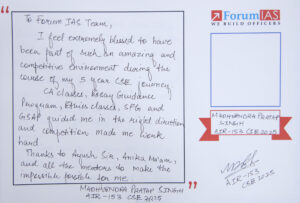 To Forum IAS Team,
I feel extremely blessed to have
been part of such an amazing and
competitive environment during the
course of my 5 year CSE journey
CA classes, Essay Guidance
Program, Ethics classes, SFG and
GSAP guided me in the right direction
and competition made me work
hand
Thanks to Ayush Sir, Anika Ma'am,
and all the mentors to make the
impossible possible for me.
MADHVENDRA PRATAP SINGH
AIR-153 CSE 2025
ForumIAS
WE BUILD OFFICERS
MADHVENDRA PRATAP
SINGH
AIR-153 CSE 2025
AIR-153
CSE 2025